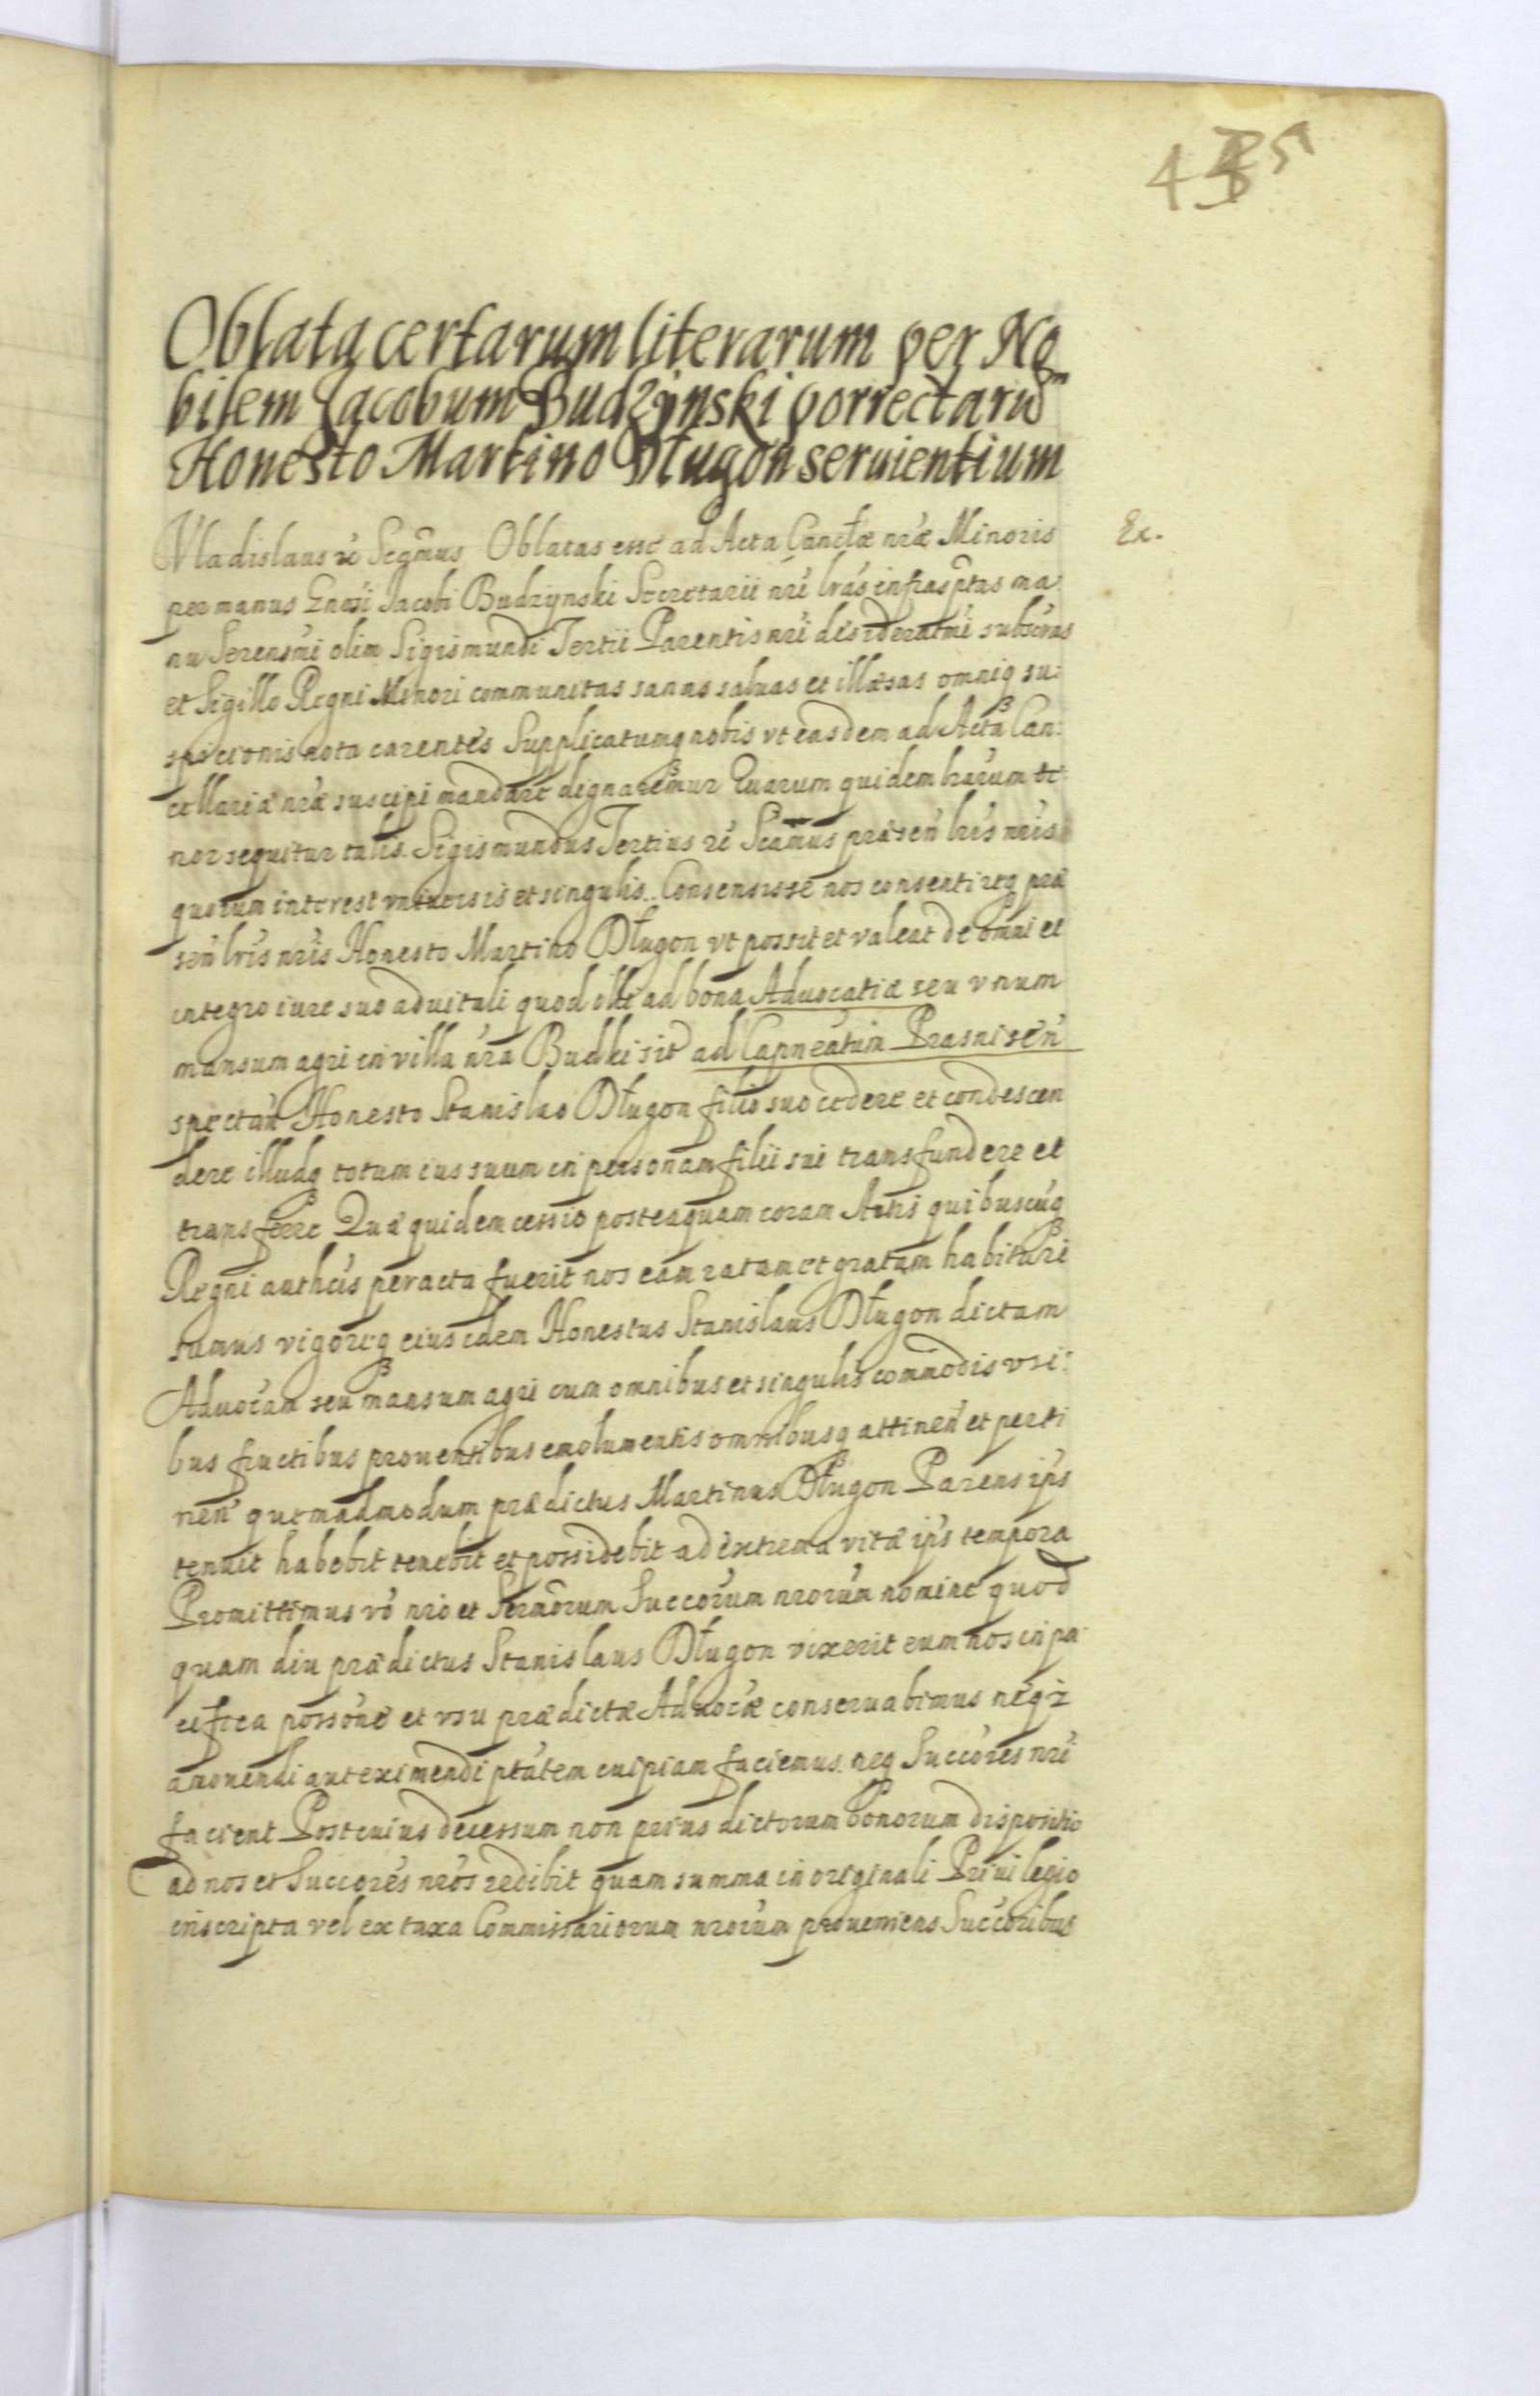 435
Oblata certarum literarum per No
bilem Jacobum Budzÿnski porrectarũ
Honesto Martino Długon seruientium
Vladislaus &c Segñus Oblatas esse ad Acta Canctæ nr̃æ Minoris
Ex.
per manus Gnosi Jacobi Budzÿnski Secretarii nr̃i lr̃as infrasptas ma
nu Serensmi olim Sigismundi Tertii Parentis nr̃i desideratmi subscras
et Sigillo Regni Minori communitas sanas saluas et illæsas omniq su:
spicionis nota carentes Supplicatumq nobis vt easdem ad Acta Can:
cellariæ nr̃æ suscipi mandare dignaremur Quarum quidem lrarum te
nor sequitur talis. Sigismundus Tertius &c Scamus præsen̄ lr̃is nr̃is
quorum interest vniuersis et singulis. Consensisse nos consentireq præ
sen̄ lr̃is nr̃is Honesto Martino Długon vt possit et valeat de omni et
integro iure suo aduitali quod illi ad bona Aduocatiæ seu vnum
mansum agri in villa nr̃a Budki sit ad Capneatum Prasnisen̄
spectan̄ Honesto Stanislao Długon filio suo cedere et condescen
dere illudq totum ius suum in personam filii sui transfundere et
transferre Quæ quidem cessio posteaquam coram Actis quibuscuq
Regni authcis peracta fuerit nos eam ratam et gratam habituri
sumus vigoreq eius idem Honestus Stanislaus Długon dictam
Aduocam seu mansum agri cum omnibus et singulis commodis vsi:
bus fructibus prouentibus emolumentis omnibusq attinen̄ et perti
nen̄ quemadmodum prædictus Martinus Długon Parens ips
tenuit habebit tenebit et possidebit ad extrema vitæ ips tempora
Promittimus vo nro et Sermorum Succorum nrorum nomine quod
quam diu prædictus Stanislaus Długon vixerit eum nos in pa
cifica possone et vsu prædictæ Aduocæ conseruabimus neqz
amouendi aut eximendi ptatem cuipiam faciemus. neq Succores nr̃i
facient Post cuius decessum non prius dictorum bonorum dispositio
ad nos et Succores nros redibit quam summa in originali Priuilegio
inscripta vel ex taxa Commissariorum nrorum proueniens Succoribus